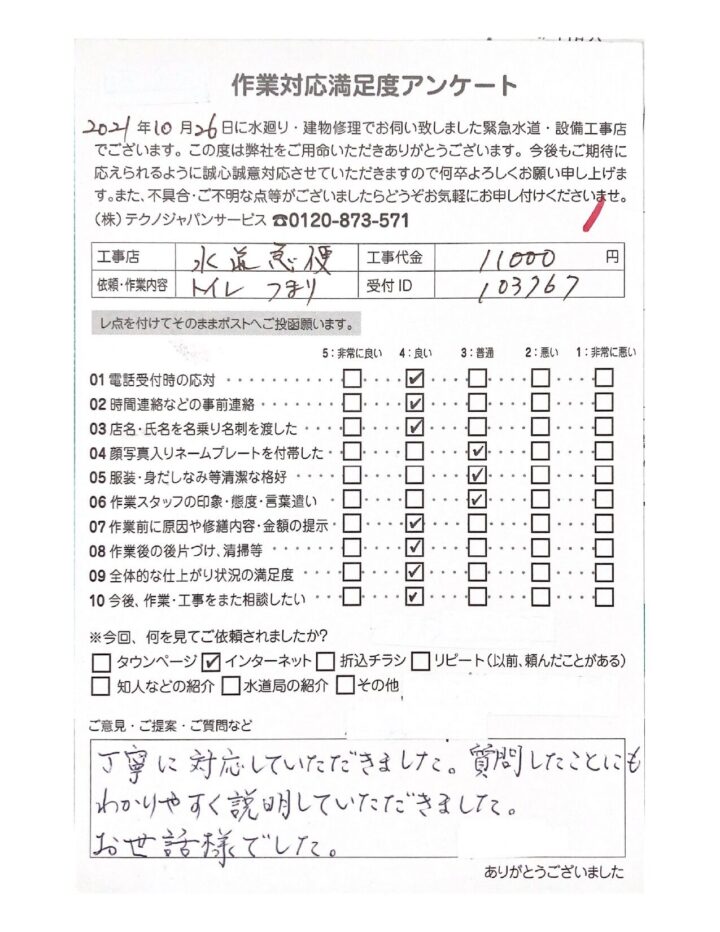 作業対応満足度アンケート
2021年10月26日に水廻り・建物修理でお伺い致しました緊急水道・設備工事店
でございます。この度は弊社をご用命いただきありがとうございます。今後もご期待に
応えられるように誠心誠意対応させていただきますので何卒よろしくお願い申し上げま
す。また、不具合・ご不明な点等がございましたらどうぞお気軽にお申し付けくださいませ。
(株)テクノジャパンサービス ☎0120-873-571
工事店 水道急便 工事代金 11000 円
依頼・作業内容 トイレ つまり 受付ID 103767
レ点を付けてそのままポストへご投函願います。
5:非常に良い 4:良い 3:普通 2:悪い 1:非常に悪い
01 電話受付時の応対 ・・・・・・・・・・ □・・・・☑・・・・□・・・・□・・・・□
02 時間連絡などの事前連絡 ・・・・・・ □・・・・☑・・・・□・・・・□・・・・□
03 店名・氏名を名乗り名刺を渡した ・・ □・・・・☑・・・・□・・・・□・・・・□
04 顔写真入りネームプレートを付帯した・・ □・・・・□・・・・☑・・・・□・・・・□
05 服装・身だしなみ等清潔な格好 ・・・・ □・・・・□・・・・☑・・・・□・・・・□
06 作業スタッフの印象・態度・言葉遣い ・・ □・・・・□・・・・☑・・・・□・・・・□
07 作業前に原因や修繕内容・金額の提示・・ □・・・・☑・・・・□・・・・□・・・・□
08 作業後の後片づけ、清掃等 ・・・・・・ □・・・・☑・・・・□・・・・□・・・・□
09 全体的な仕上がり状況の満足度 ・・・・ □・・・・☑・・・・□・・・・□・・・・□
10 今後、作業・工事をまた相談したい ・・・ □・・・・☑・・・・□・・・・□・・・・□
※今回、何を見てご依頼されましたか?
□ タウンページ ☑ インターネット □ 折込チラシ □ リピート(以前、頼んだことがある)
□ 知人などの紹介 □ 水道局の紹介 □ その他
ご意見・ご提案・ご質問など
丁寧に対応していただきました。質問したことにも
わかりやすく説明していただきました。
お世話様でした。
ありがとうございました